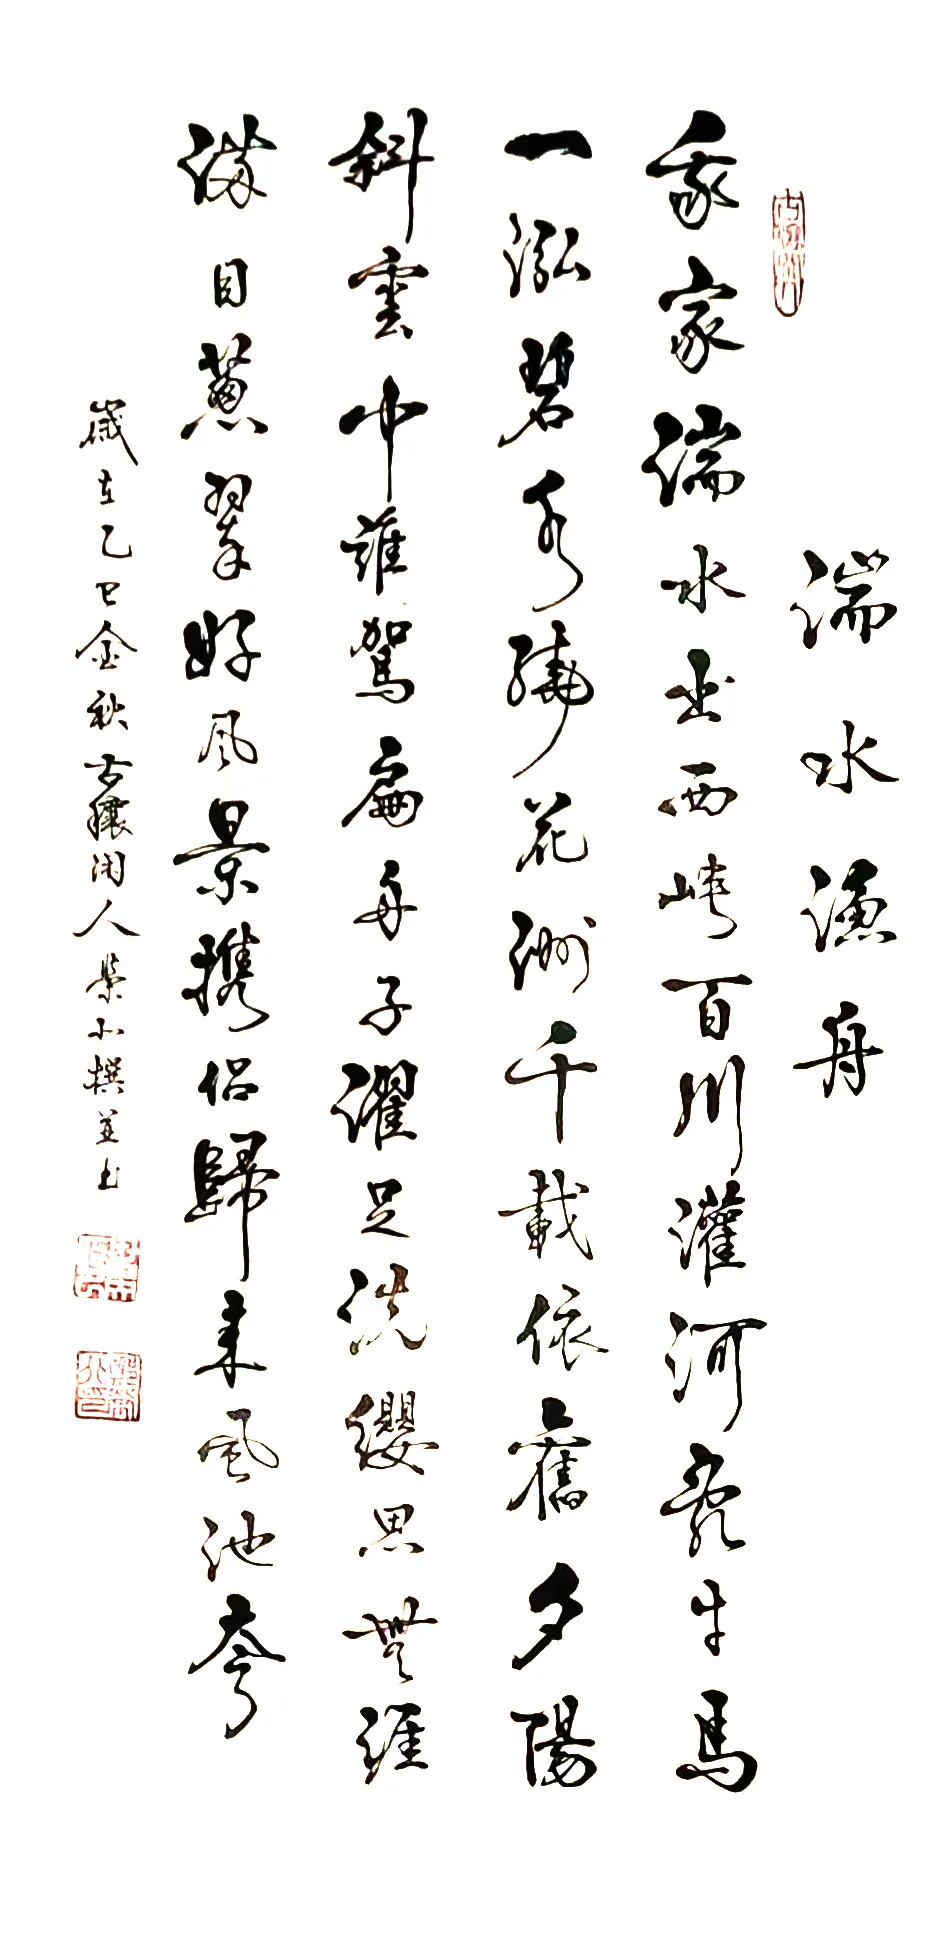 湍水漁舟
我家湍水出西峽百川灌河牛馬
一泓碧水繞花洲千載依舊夕陽
斜雲中誰駕扁舟子濯足洗纓思無涯
滿目蔥翠好風景携侶歸来風池夸
歲在乙巳金秋古穰闲人撰並书